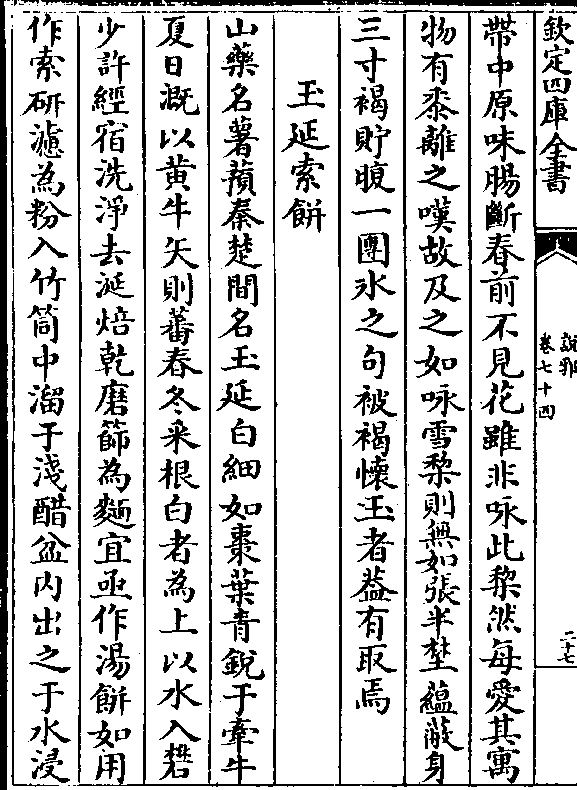 欽定四庫全書
說郛
卷七十四
二十七
帶中原味腸斷春前不見花雖非咏此棃然每愛其寓
物有黍離之嘆故及之如咏雪棃則無如張半埜蘊蔽身
三寸褐貯腹一團氷之句被褐懷玉者葢有取焉
玉延索餅
山藥名薯蕷秦楚間名玉延白細如棗葉青銳于牽牛
夏日溉以黄牛矢則蕃春冬采根白者為上以水入礬
少許經宿洗淨去涎焙乾磨篩為麵宜亟作湯餅如用
作索研濾為粉入竹筒中溜于淺醋盆内出之于水浸